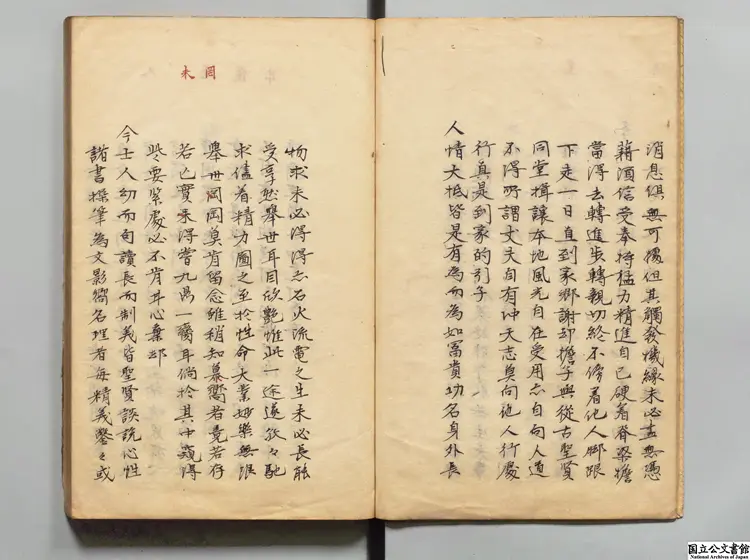 消息俱無可攬但其觸發機緣未必盡無憑
藉須信受奉持猛力精進自己硬着脊梁擔
當得去轉進步轉親切終不傍着他人脚跟
下走一日直到家鄉謝却擔子與從古聖賢
同堂揖讓本地風光自在受用亦自向人道
不得所謂丈夫自有冲天志莫向他人行處
行真是到家的引子
人情大抵皆是有為而為如冨貴功名身外長
物求未必得得亦石火流電之生未必長能
受享然舉世耳目欣艷惟此一途遂欽々馳
求儘着精力圖之至於性命大業妙樂無涯
舉世罔罔莫肯留念雖稍知慕嚮若竟若存
若亡實釆得嘗九鼎一臠耳倘於其中窺得
些々要緊處必不肯甘心棄却
今士人幼而句讀長而制義皆聖賢談說心性
諸書操筆為文影嚮名理者每精義鑿々或
罔
未
国立公文書館
National Archives of Japan